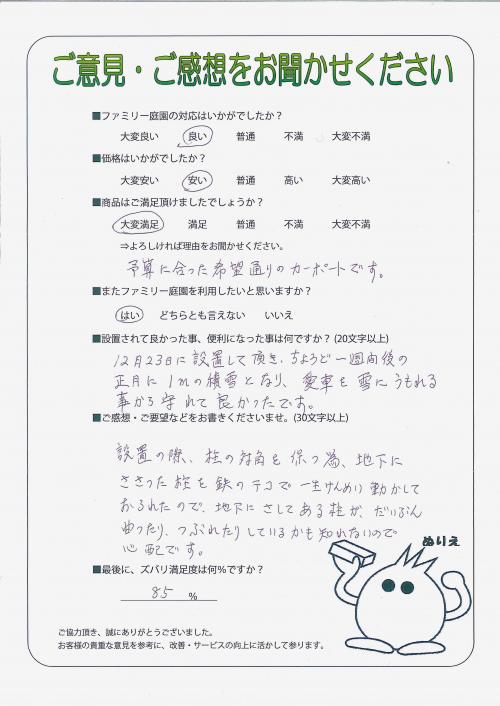 ご意見・ご感想をお聞かせください
■ファミリー庭園の対応はいかがでしたか?
大変良い 良い 普通 不満 大変不満
■価格はいかがでしたか?
大変安い 安い 普通 高い 大変高い
■商品はご満足頂けましたでしょうか?
大変満足 満足 普通 不満 大変不満
⇒よろしければ理由をお聞かせください。
予算に合った希望通りのカーポートです。
■またファミリー庭園を利用したいと思いますか?
はい どちらとも言えない いいえ
■設置されて良かった事、便利になった事は何ですか? (20文字以上)
12月23日に設置して頂き、ちょうど一週間後の
正月に1mの積雪となり、愛車を雪にうもれる
事から守れて良かったです。
■ご感想・ご要望などをお書きくださいませ。(30文字以上)
設置の際、柱の対角を保つ為、地下に
ささった柱を鉄のテコで一生けんめい動かして
おられたので、地下にさしてある柱が、だいぶん
曲ったり、つぶれたりしているかも知れないので
心配です。
ぬりえ
■最後に、ズバリ満足度は何%ですか?
85 %
ご協力頂き、誠にありがとうございました。
お客様の貴重な意見を参考に、改善・サービスの向上に活かして参ります。